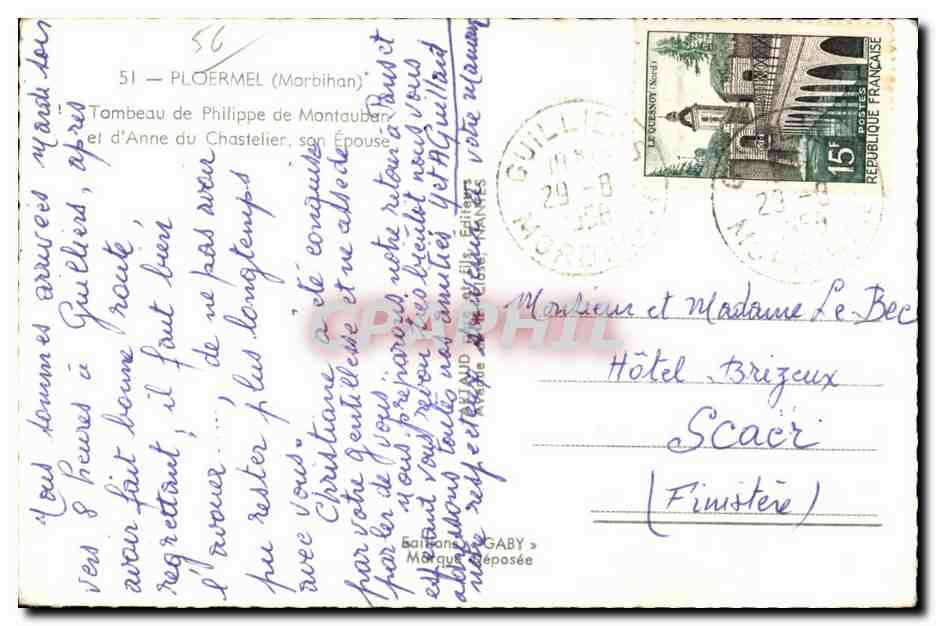 56
51 — PLOERMEL (Morbihan)
Tombeau de Philippe de Montauban
et d'Anne du Chastelier, son Épouse
Nous sommes arrivées mardi soir
vers 8 heures à Guilliers, après
avoir fait bonne route,
regrettant, il faut bien
l'avouer...., de ne pas avoir
pu rester plus longtemps
avec vous"
Christiane a été conquise
par votre gentillesse et ne cesse de
parler de vous.
Nous préparons notre retour à Paris et
espérant vous revoir très bientôt nous vous
adressons toutes nos amitiés
notre respectueux souvenir
votre maman
ARTAUD Père et Fils, Éditeurs
NANTES
Editions « GABY »
Marque déposée
LE QUESNOY (Nord)
15F
POSTES
RÉPUBLIQUE FRANÇAISE
GUILLIERS
29 -8
1958
MORBIHAN
29 -8
Monsieur et Madame Le Bec
Hôtel Brizeux
Scaër
(Finistère)
CPAPHIL